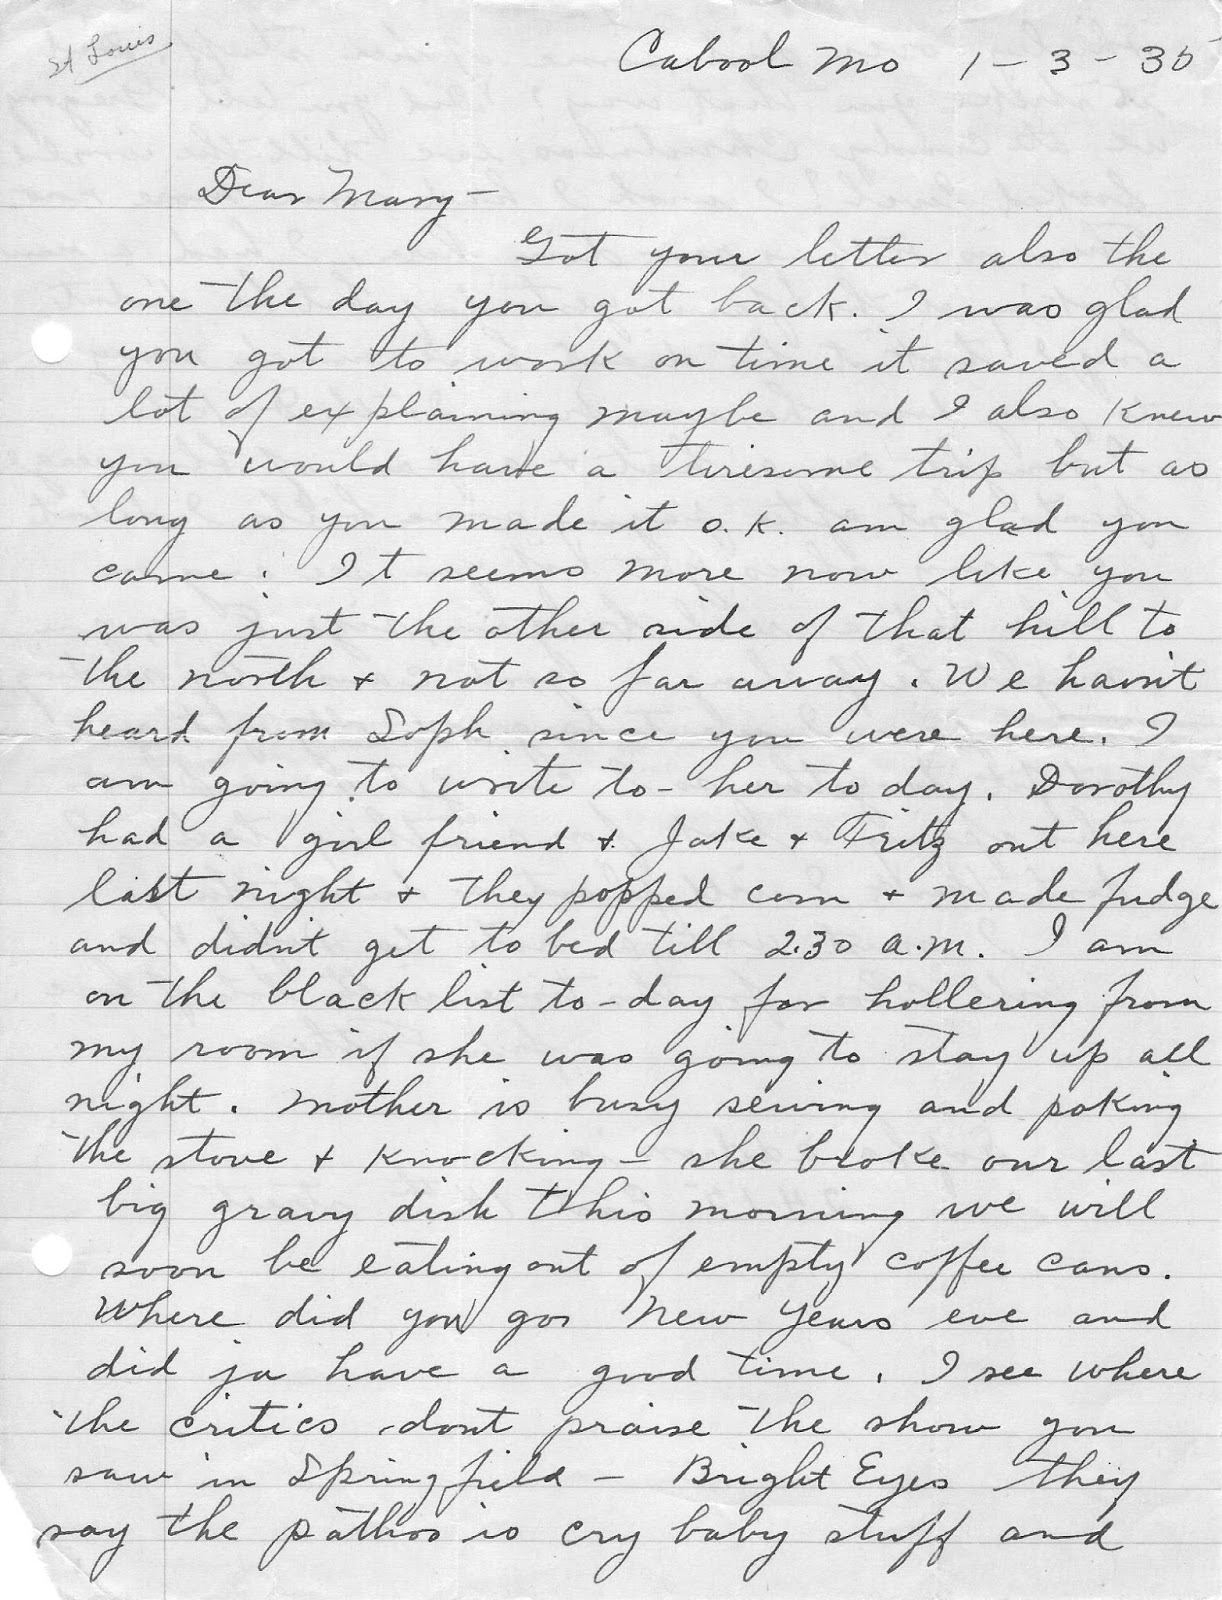 St Louis
Cabool Mo 1-3-35
Dear Mary-
Got your letter also the
one the day you got back. I was glad
you got to work on time it saved a
lot of explaining maybe and I also knew
you would have a tiresome trip but as
long as you made it o.k. am glad you
came. It seems more now like you
was just the other side of that hill to
the north + not so far away. We havn't
heard from Soph since you were here. I
am going to write to her to day. Dorothy
had a girl friend + Jake + Fritz out here
last night + they popped corn + made fudge
and didn't get to bed till 2.30 a.m. I am
on the black list to-day for hollering from
my room if she was going to stay up all
night. Mother is busy sewing and poking
the stove + knocking - she broke our last
big gravy dish this morning we will
soon be eating out of empty coffee cans.
Where did you go New Years eve and
did ja have a good time. I see where
the critics dont praise the show you
saw in Springfield - Bright Eyes they
say the pathos is cry baby stuff and